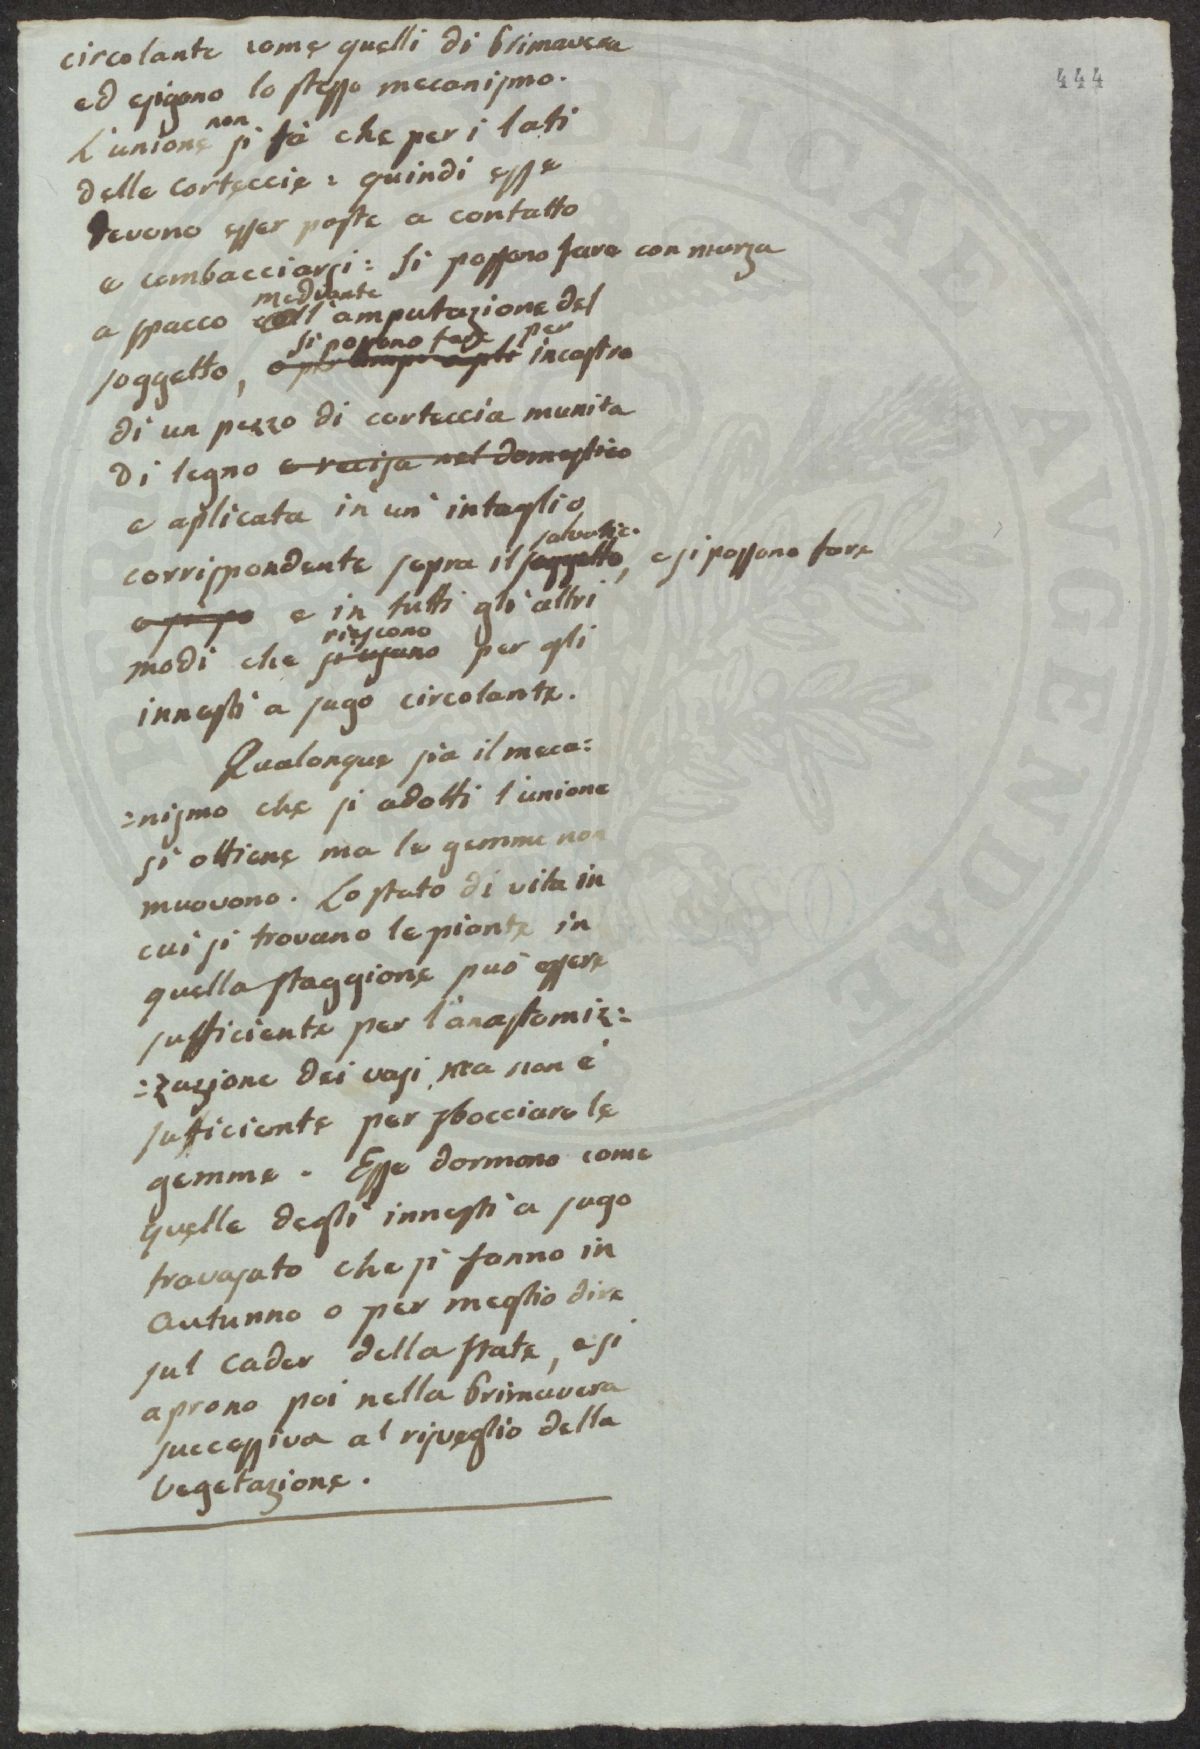 444
circolante come quelli di Primavera
ed esigono lo stesso mecanismo.
L'unione non si fà che per i lati
delle corteccie: quindi esse
devono esser poste a contatto
e combacciarsi: Si possono fare con marza
a spacco mediante l'amputazione del
soggetto, si possono fare per incastro
di un pezzo di corteccia munita
di legno e recisa nel domestico
e aplicata in un' intaglio
corrispondente sopra il soggetto salvatic. , e si possono fare
e si po e in tutti gli altri
modi che si usano riescono per gli
innesti a sugo circolante.
Qualonque sia il meca=
=nismo che si adotti l'unione
si ottiene ma le gemme non
muovono. Lo stato di vita in
cui si trovano le piante in
quella staggione può essere
sufficiente per l'anastomiz=
=zazione dei vasi, ma non è
sufficiente per sbocciare le
gemme. Esse dormono come
quelle degli innesti a sugo
travasato che si fanno in
Autunno o per meglio dire
sul cader della state, e si
aprono poi nella Primavera
successiva al risveglio della
Vegetazione.